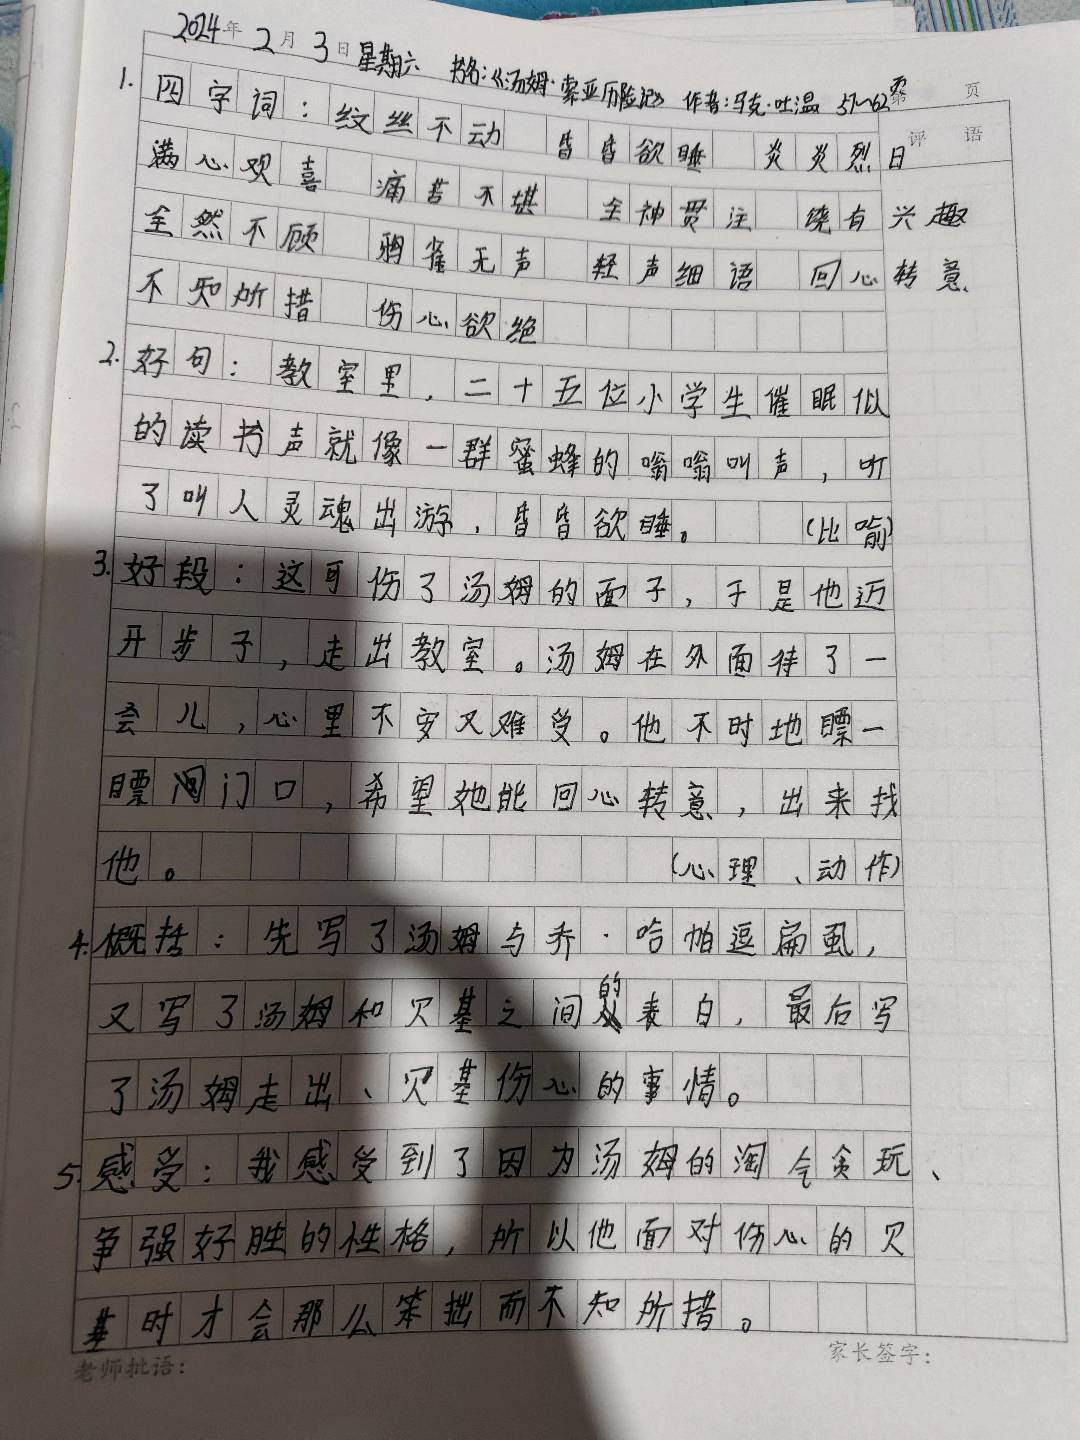 2024年2月3日星期六 书名:《汤姆·索亚历险记》 作者:马克·吐温 57~62页 第 页
评语
1. 四字词:纹丝不动 昏昏欲睡 炎炎烈日
满心欢喜 痛苦不堪 全神贯注 绕有兴趣
全然不顾 鸦雀无声 轻声细语 回心转意
不知所措 伤心欲绝
2. 好句:教室里,二十五位小学生催眠似
的读书声就像一群蜜蜂的嗡嗡叫声,听
了叫人灵魂出游,昏昏欲睡。 (比喻)
3. 好段:这可伤了汤姆的面子,于是他迈
开步子,走出教室。汤姆在外面待了一
会儿,心里不安又难受。他不时地瞟一
瞟门口,希望她能回心转意,出来找
他。 (心理、动作)
4. 概括:先写了汤姆与乔·哈帕逗扁虱,
又写了汤姆和贝基之间的表白,最后写
了汤姆走出、贝基伤心的事情。
5. 感受:我感受到了因为汤姆的淘气贪玩、
争强好胜的性格,所以他面对伤心的贝
基时才会那么笨拙而不知所措。
老师批语: 家长签字: